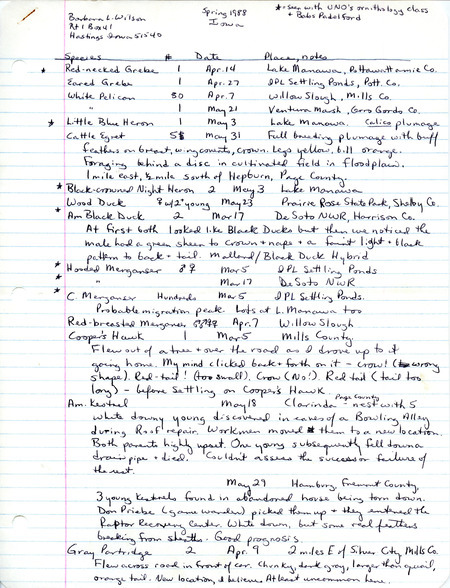 Barbara L. Wilson
Rt 1 Box 41
Hastings Iowa 51540
Spring 1988
Iowa
* = seen with UNO's ornithology class
+ Babs Padelford
Species # Date Place, notes
* Red-necked Grebe 1 Apr. 14 Lake Manawa, Pottawattamie Co.
Eared Grebe 1 Apr. 27 IPL Settling Ponds, Pott. Co.
White Pelican 30 Apr. 7 Willow Slough, Mills Co.
" 1 May 21 Ventura Marsh, Cerro Gordo Co.
* Little Blue Heron 1 May 3 Lake Manawa. Calico plumage
Cattle Egret 5 May 31 Full breeding plumage with buff
feathers on breast, wing coverts, crown. Legs yellow, bill orange.
Foraging behind a disc in cultivated field in floodplain.
1 mile east, ½ mile south of Hepburn, Page County.
* Black-crowned Night Heron 2 May 3 Lake Manawa
Wood Duck ♀ w/2 young May 23 Prairie Rose State Park, Shelby Co.
* Am Black Duck 2 Mar 17 De Soto NWR, Harrison Co.
At first both looked like Black Ducks but then we noticed the
male had a green sheen to crown + nape + a faint light + black
pattern to back + tail. Mallard/Black Duck Hybrid
* Hooded Merganser ♂♀ Mar 5 IPL Settling Ponds
* " Mar 17 De Soto NWR
* C. Merganser Hundreds Mar 5 IPL Settling Ponds.
Probable migration peak. Lots at L. Manawa too
Red-breasted Merganser Apr. 7 Willow Slough
Cooper's Hawk 1 Mar 5 Mills County
Flew out of a tree + over the road as I drove up to it
going home. My mind clicked back + forth on it - crow! (wrong
shape). Red-tail! (too small). Crow (No!). Red tail (tail too
long) - before settling on Cooper's Hawk.
Am. Kestrel May 18 Clarinda Page County - nest with 5
white downy young discovered in eaves of a Bowling Alley
during Roof repair. Workmen moved them to a new location.
Both parents highly upset. One young subsequently fell down a
drain pipe + died. Couldn't assess the success or failure of
the rest.
May 27 Hamburg, Fremont County.
3 young kestrels found in abandoned house being torn down.
Don Priebe (game warden) picked them up + they entered the
Raptor Recovery Center. White down, but some real feathers
breaking from sheaths. Good prognosis.
Gray Partridge 2 Apr. 9 2 miles E of Silver City Mills Co.
Flew across road in front of car. Chunky, dark gray, larger than quail,
orange tail. New location, I believe. At least uncommon here.